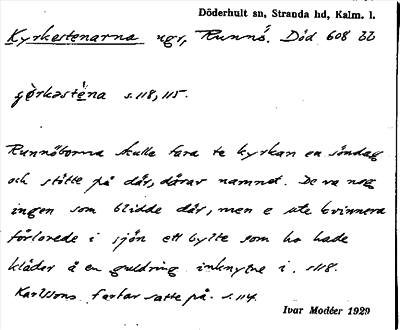 Döderhult sn, Stranda hd, Kalm. l.
Kyrkestenarna ugr, Runnö. Död 608
s. 118, 115.
Runnöborna skulle fara te kyrkan en söndag
och stötte på där, därav namnet. De va nog
ingen som blidde där, men e ute kvinnera
förlorede i sjön ett bylte som ho hade
kläder å en guldring inknytne i. s. 118.
Karlssons farfar satte på. s. 114.
Ivar Modéer 1929